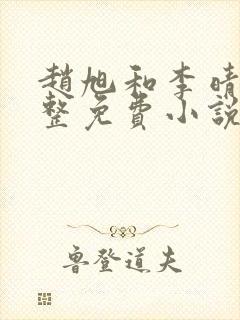 趙旭和李晴
整免費小說
魯登道夫